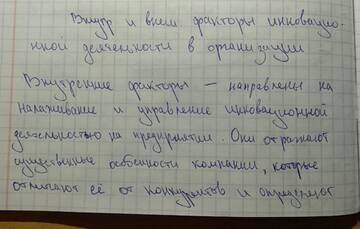 Внутр и внеш факторы инновацио-
нной деятельности в организации
Внутренние факторы — направлены на
налаживание и управление инновационной
деятельностью на предприятии. Они отражают
существенные особенности компании, которые
отличают её от конкурентов и определяют